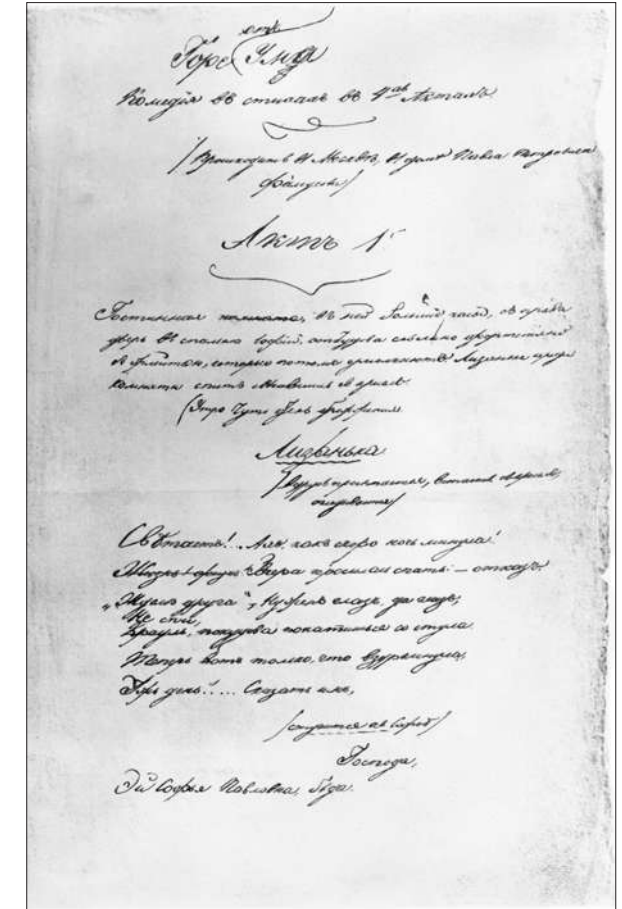 отъ
Горе Ума
Комедія въ стихахъ въ 4хъ Актахъ
/Происходитъ въ Москвѣ, въ домѣ Павла Петровича
Фамусова/
Актъ 1
Гостинная комната, въ ней большіе часы, съ права
дверь въ спальню Софіи, откудова слышно фортепіяно
съ флейтою, которые потомъ умолкаютъ. Лизанька среди
комнаты спитъ свѣсившись съ креселъ.
(Утро чуть день брежжется
Лизанька
/вдругъ просыпается, встаетъ съ креселъ,
оглядывается/
Свѣтаетъ!.. Ахъ, какъ скоро ночь минула!
Вчера просилась спать – отказъ.
„Ждемъ друга“, Нуженъ глазъ да глазъ,
Не спи,
покудова не скатишься со стула.
Теперь вотъ только, что вздремнула,
Ужъ день!.... Сказать имъ,
/стучится къ Софьѣ/
Господа,
Эй Софья Павловна, бѣда.